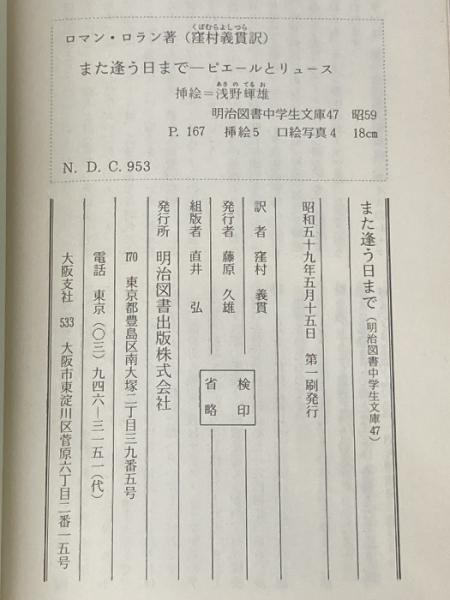 くぼむらよしつら
ロマン・ロラン著（窪村義貫訳）
また逢う日まで―ピエールとリュース
あさのてるお
挿絵＝浅野輝雄
明治図書中学生文庫47 昭59
P. 167 挿絵5 口絵写真4 18cm
N. D. C. 953
また逢う日まで（明治図書中学生文庫47）
昭和五十九年五月十五日 第一刷発行
訳者 窪村義貫
発行者 藤原久雄
検印
省略
組版者 直井弘
発行所 明治図書出版株式会社
170 東京都豊島区南大塚二丁目三九番五号
電話 東京（〇三）九四六―三一五一（代）
大阪支社 533 大阪市東淀川区菅原六丁目二番一五号